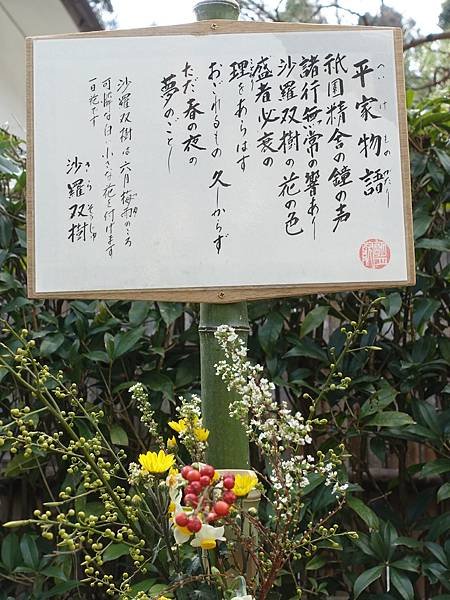 平家物語
へいけものがたり
祇園精舎の鐘の声
諸行無常の響あり
沙羅双樹の花の色
盛者必衰の
理をあらはす
おごれるもの久しからず
ただ春の夜の
夢のごとし
沙羅双樹は六月梅雨のころ
可憐な白い小さな花を付けます
一日花です
沙羅双樹
さらそうじゅ